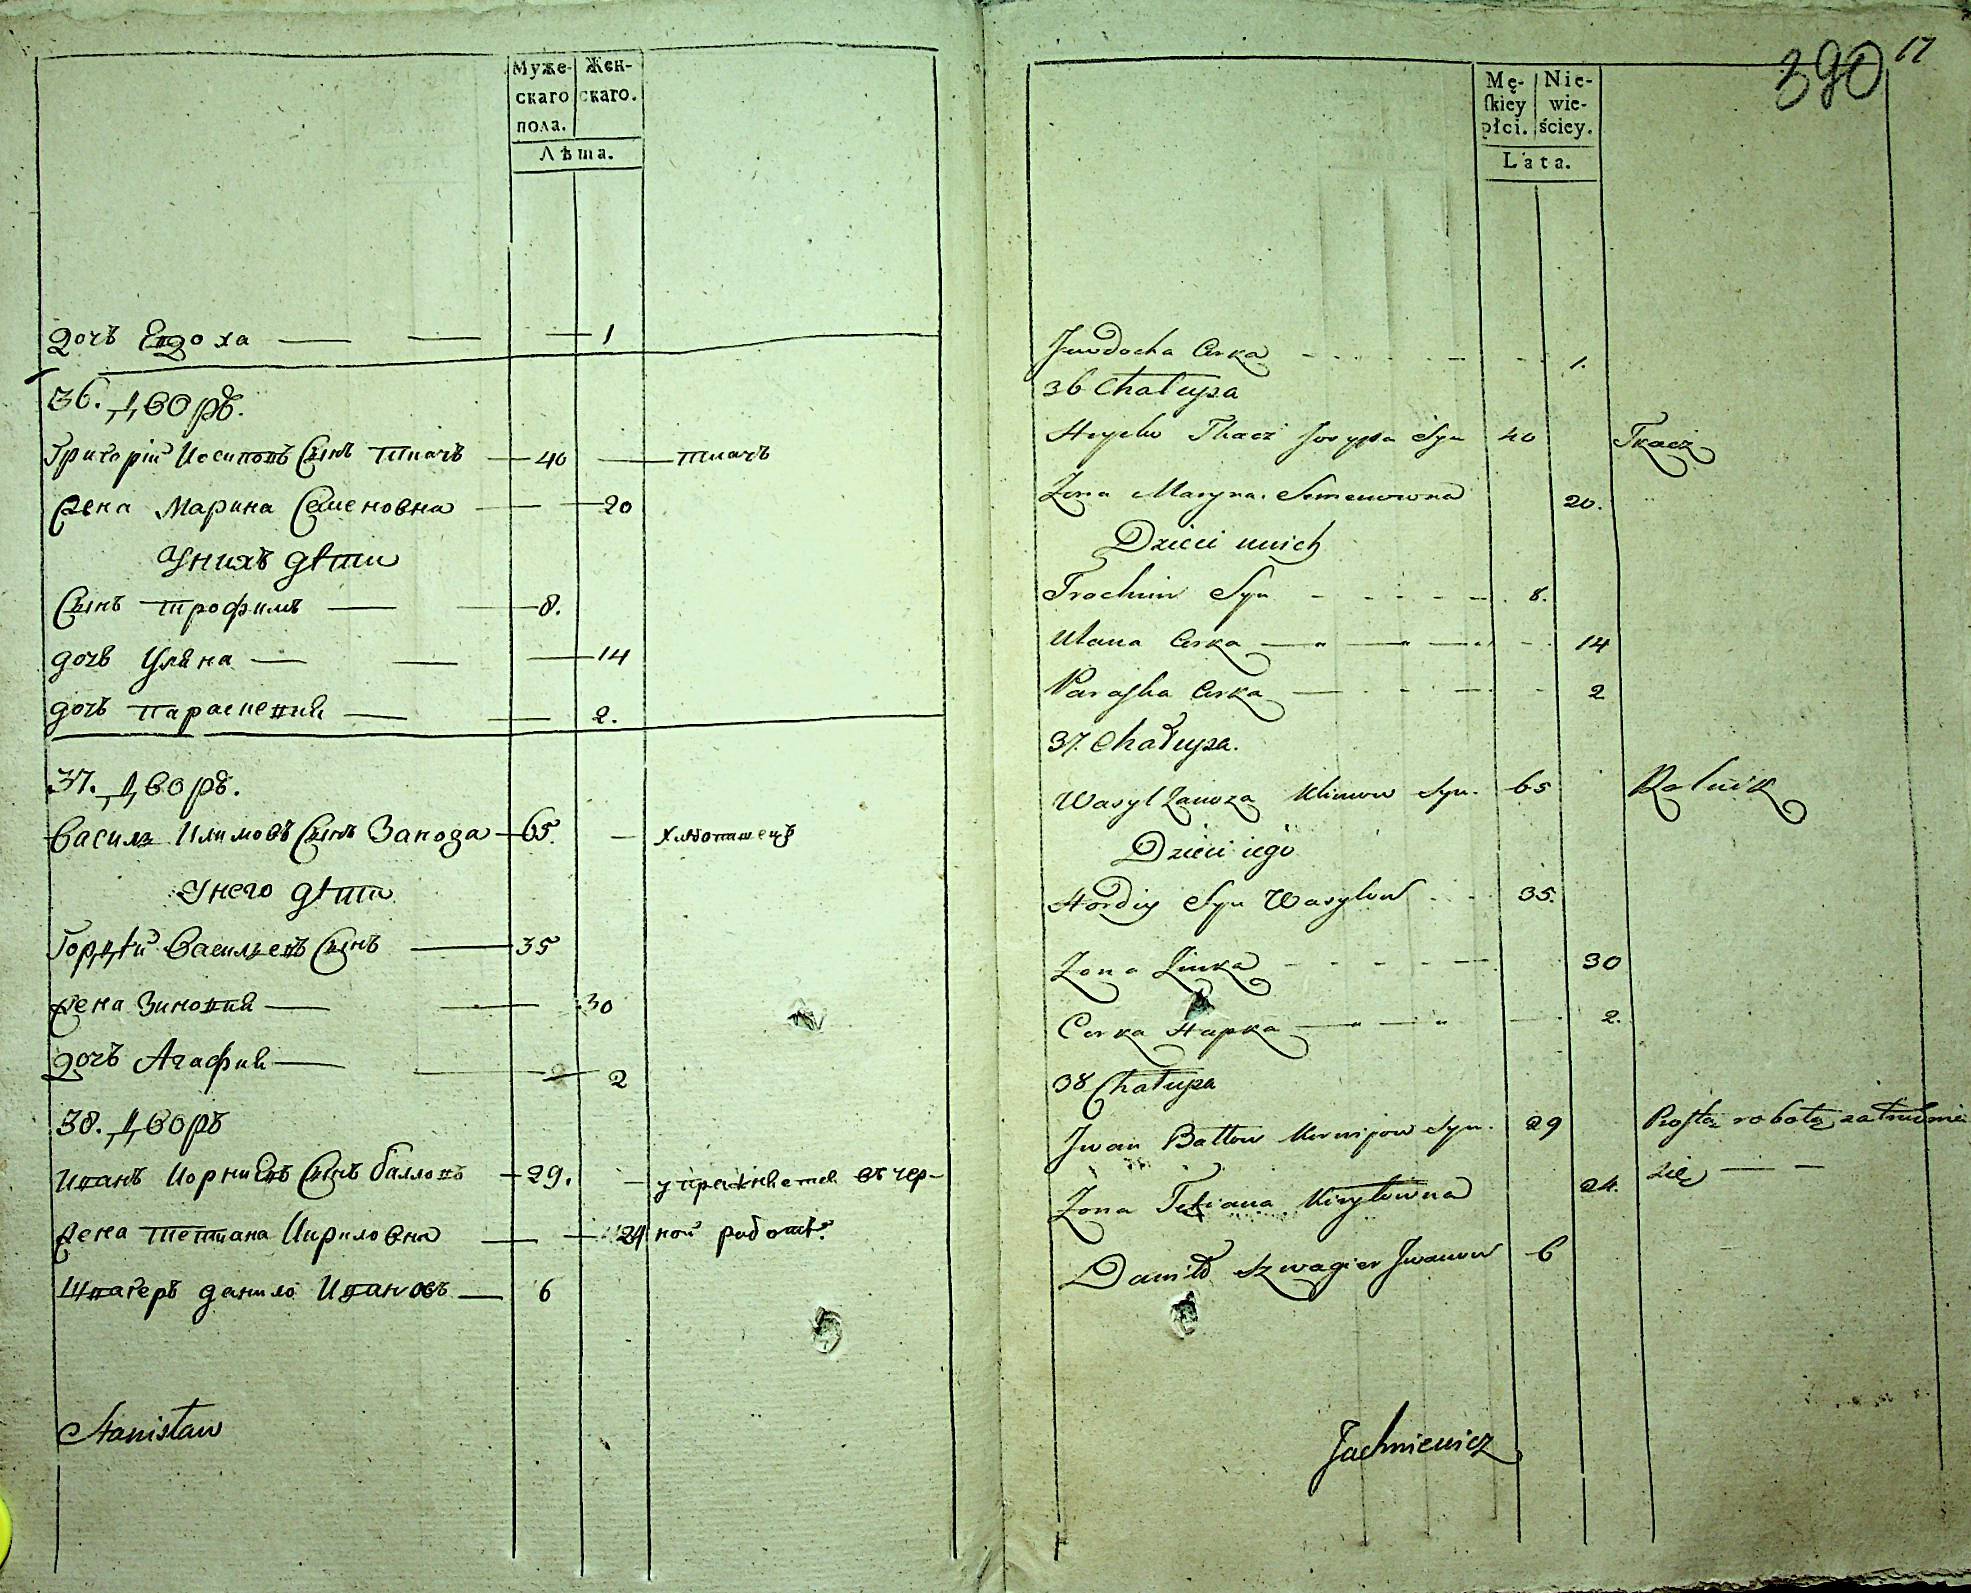 Муже-
скаго
пола.
Жен-
скаго.
Лѣта.
дочъ Евдоха — — — 1
36. Дворъ.
Григорій Иосиповъ Сынъ Ткачъ — 40 — ткачъ
Жена Марина Семеновна — — 20
Унихъ дѣти
Сынъ Трофимъ — — 8.
дочъ Уляна — — — 14
дочъ Параскевия — — 2.
37. Дворъ.
Василь Климовъ Сынъ Заноза — 65. — хлѣбопашецъ
Унего дѣти
Гордѣй Васильевъ Сынъ — 35
Жена Зиновия — — 30
дочъ Агафия — — 2
38. Дворъ
Иванъ Корниевъ Сынъ балловъ — 29. — упражняется въ чер-
Жена Тетиана Кириловна — — 24 ной работѣ.
Швагеръ данило Ивановъ — 6
Stanisław
390 17
Mę-
ſkiey
płci.
Nie-
wie-
ściey.
Lata.
Juwdocha Curka - - - - - 1.
36 Chałupa
Hryćko Tkacz Josypa Syn 40 Tkacz
Zona Maryna Semenowna 20.
Dzieci unich
Trochim Syn - - - - - 8.
Ulana Curka — — — - 14
Paraſka Curka — - - — - 2
37. Chałupa.
Wasyl Zanoza Klimow Syn. - 65 Rolnik
Dzieci iego
Hordiy Syn Wasylow - - 35.
Zona Zinka - - - - — 30
Curka Hapka — — — 2.
38 Chałupa
Jwan Bałłow Kornijow Syn. - 29 Proſtą robotą zatrudnia
Zona Tetiana Kiryłowna 24. się — —
Daniło Szwagier Jwanow - 6
Jachniewicz